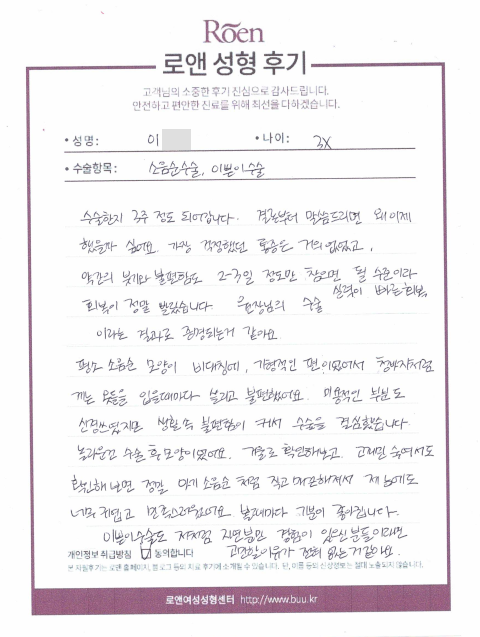 Rōen
로앤 성형 후기
고객님의 소중한 후기 진심으로 감사드립니다.
안전하고 편안한 진료를 위해 최선을 다하겠습니다.
• 성명: 이 • 나이: 3X
• 수술항목: 소음순수술, 이쁜이수술
수술한지 3주 정도 되어갑니다. 결론부터 말씀드리면 왜 이제
했을까 싶어요. 가장 걱정했던 통증은 거의 없었고,
약간의 붓기와 불편함도 2-3일 정도만 참으면 될 수준이라
회복이 정말 빨랐습니다 원장님의 수술 실력이 빠른회복
이라는 결과로 증명되는거 같아요.
평소 소음순 모양이 비대칭에, 기형적인 편이어서 청바지처럼
끼는 옷들을 입을때마다 쓸리고 불편했어요. 미용적인 부분도
신경쓰였지만 생활 속 불편함이 커서 수술을 결심했습니다
놀라운건 수술 후 모양이었어요. 거울로 확인해보고 고개만 숙여서도
확인해보면 정말 아기 소음순 처럼 작고 매끈해져서 제 눈에도
너무 귀엽고 만족스러웠어요. 볼때마다 기분이 좋아집니다.
이쁜이수술도 저처럼 자연분만 경험이 있으신 분들이라면
고민할 이유가 전혀 없는거같아요.
개인정보 취급방침 동의합니다
본 자필후기는 로앤 홈페이지, 블로그 등의 치료 후기에 소개될 수 있습니다. 단, 이름 등의 신상정보는 절대 노출되지 않습니다.
로앤여성성형센터 http://www.buu.kr